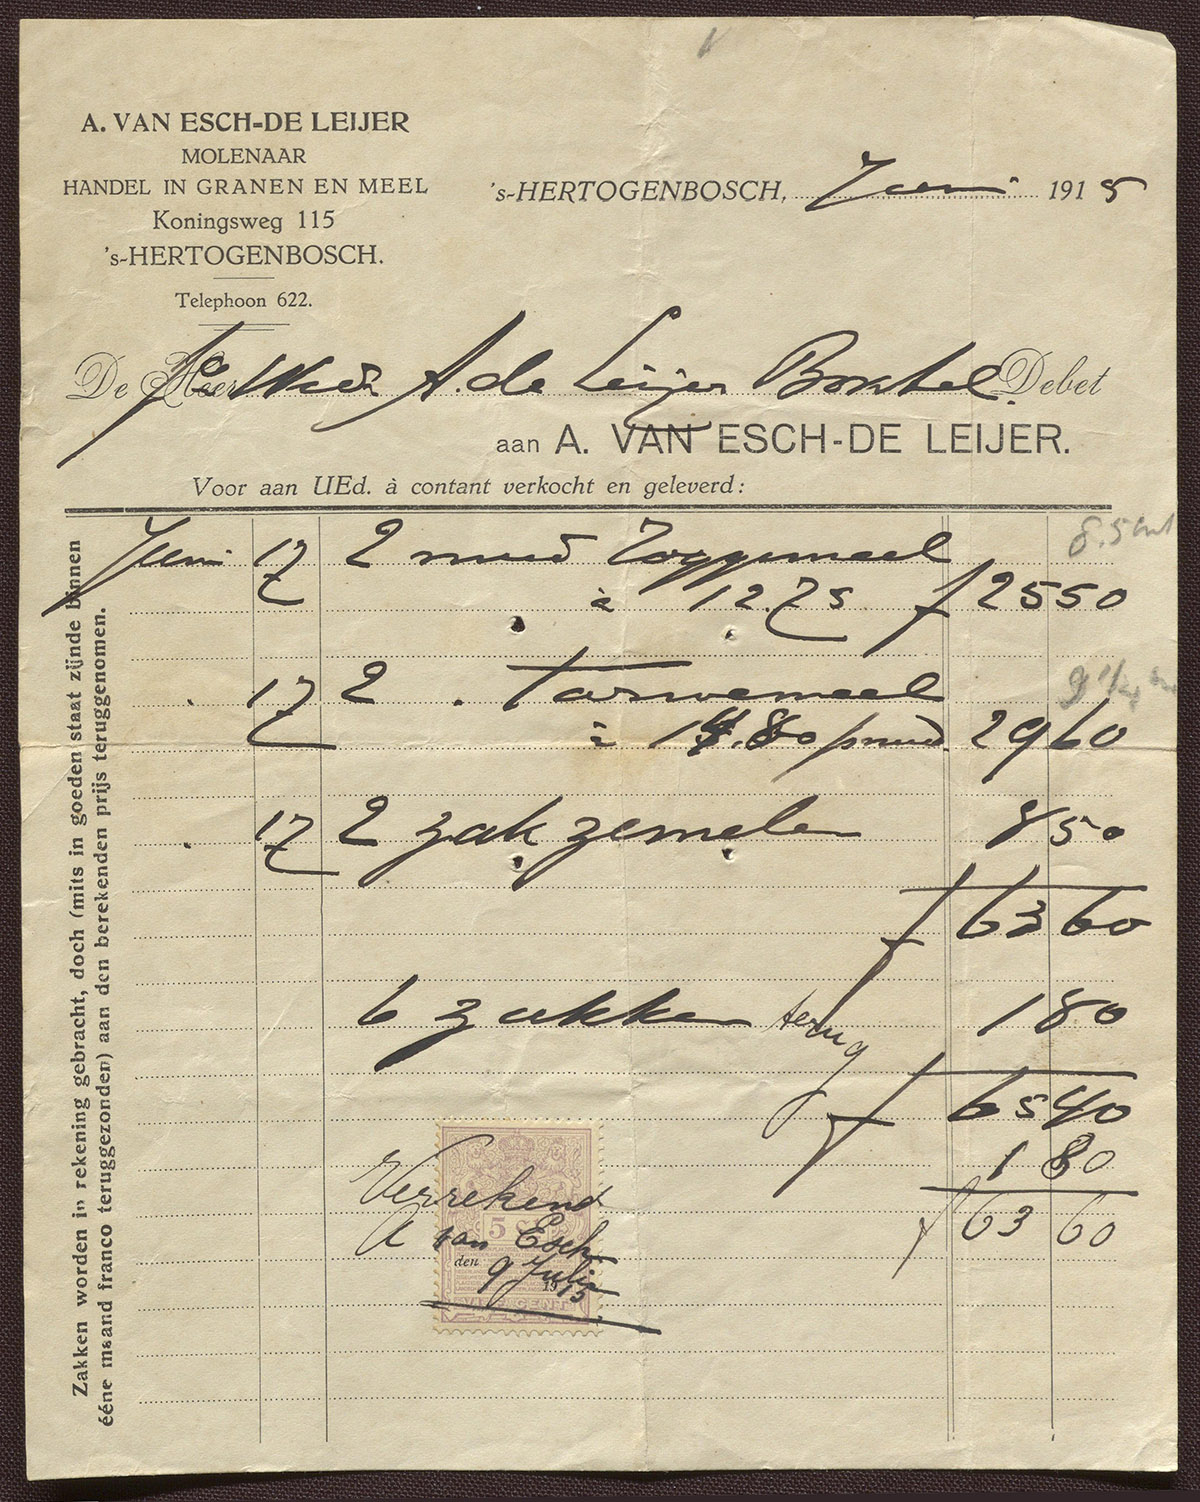 A. VAN ESCH-DE LEIJER
MOLENAAR
HANDEL IN GRANEN EN MEEL
Koningsweg 115
's-HERTOGENBOSCH.
Telephoon 622.
's-HERTOGENBOSCH, Juni 1915
De Heer Wed A. de Leijer Boxtel Debet
aan A. VAN ESCH-DE LEIJER.
Voor aan UEd. à contant verkocht en geleverd:
Juni 17 2 mud Roggemeel 8.5 cent
à 12.75 f 25 50
. 17 2 . Tarwemeel 9 1/4
à 14.80 p mud. 29 60
. 17 2 zak zemelen 8 50
f 63 60
6 zakken 1 80
terug
f 65 40
1 80
f 63 60
Verrekend
5 CENT
A van Esch
den 9 Juli 1915
VIJF CENT
Zakken worden in rekening gebracht, doch (mits in goeden staat zijnde binnen
ééne maand franco teruggezonden) aan den berekenden prijs teruggenomen.